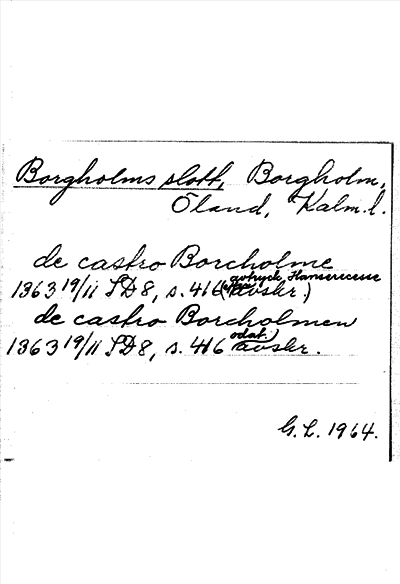 Borgholms slott, Borgholm,
Öland, Kalm.l.
de castro Borcholme
1363 19/11 SD8, s. 416 (avtryck Hanserecesse avskr.)
de castro Borcholmen
1363 19/11 SD8, s. 416 odat. avskr.
G.L. 1964.